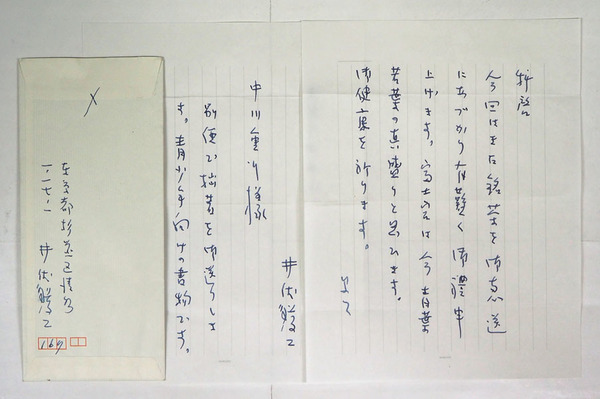 拝啓
今回はまた銘茶を御恵送
にあづかり有難く御禮申
上げます。富士宮は今青葉
若葉の真盛りと思ひます。
御健康を祈ります。
井伏鱒二
中川様
別便で拙著を御送りしま
す。青少年向けの書物です。
〆
東京都杉並区清水
井伏鱒二
167